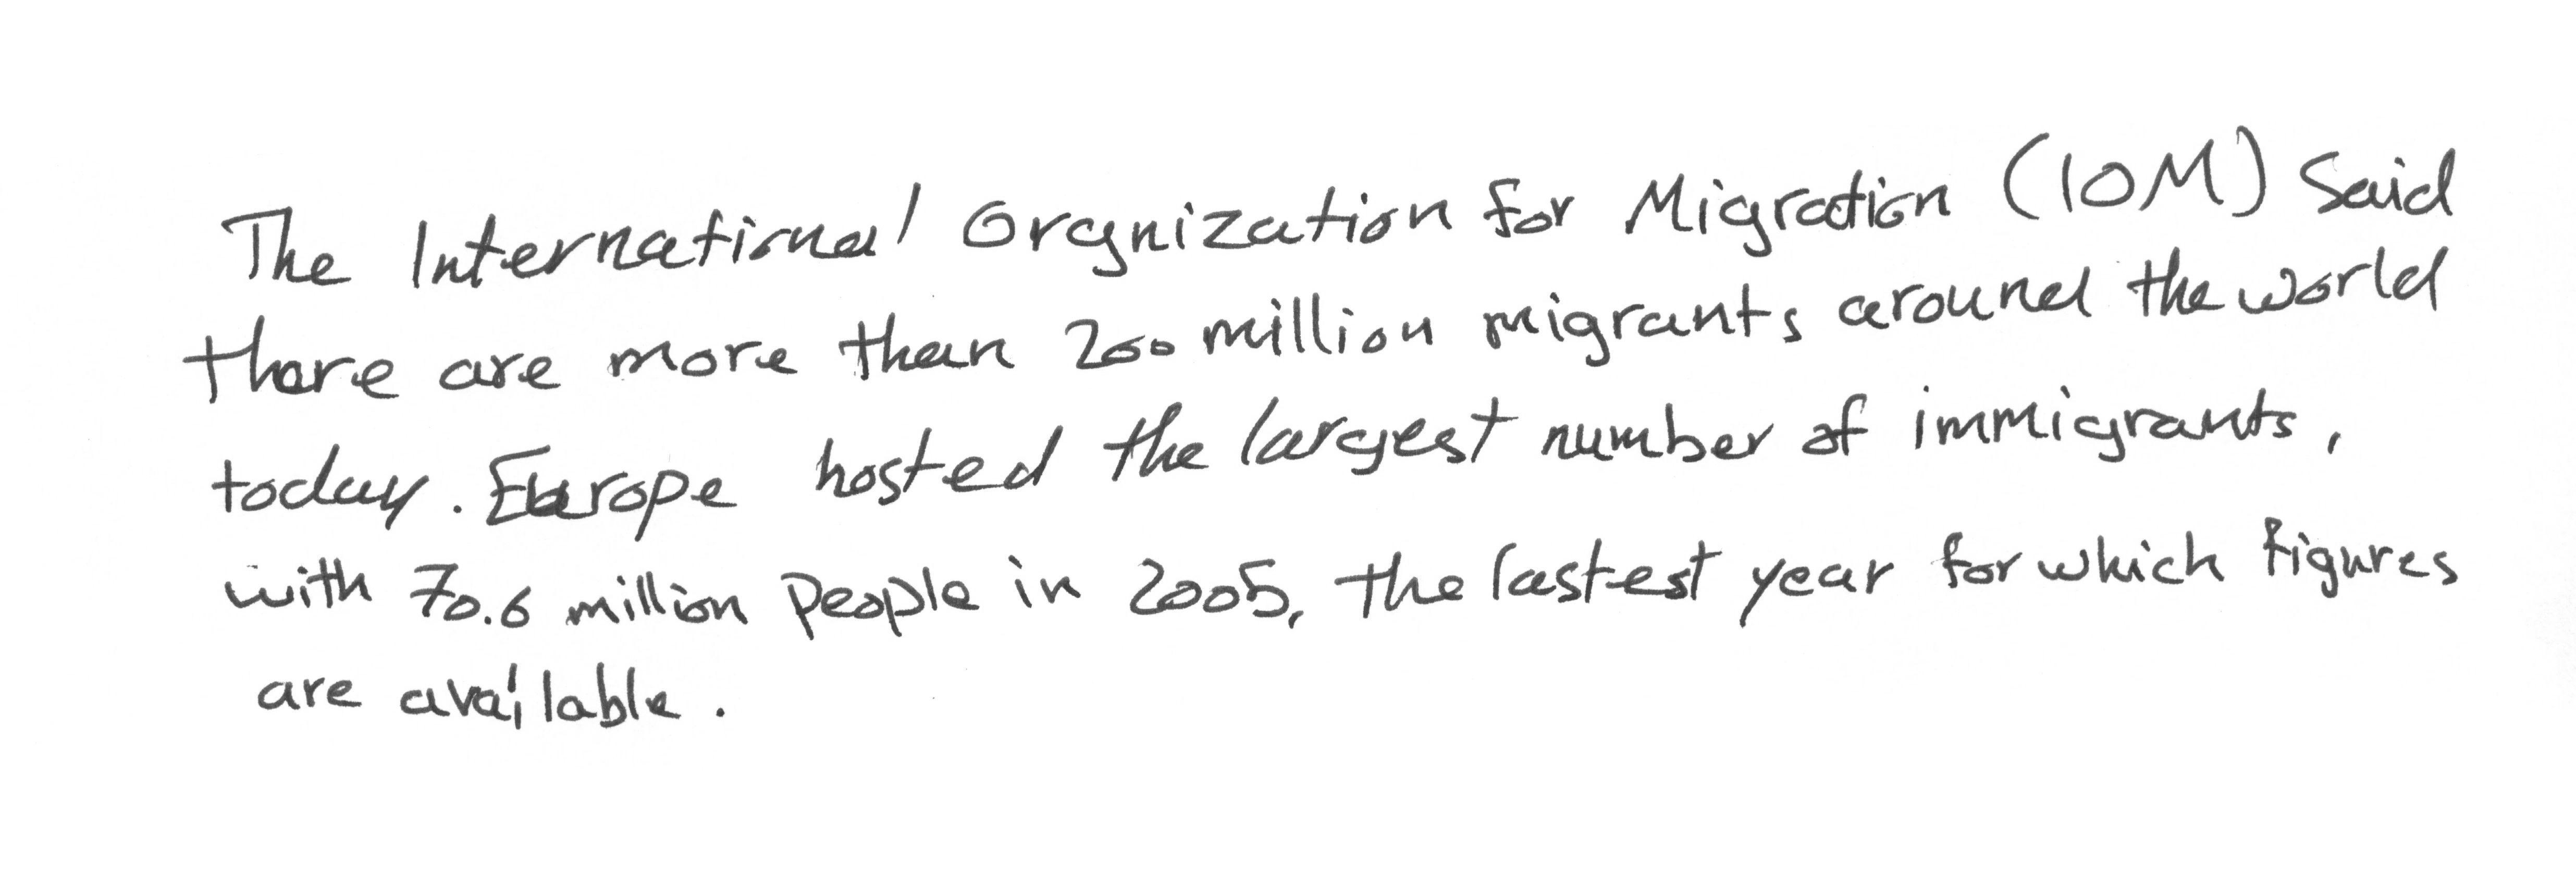 The International Orgnization for Migration (IOM) Said
there are more than 200 million migrants around the world
today. Europe hosted the largest number of immigrants,
with 70.6 million people in 2005, the lastest year for which figures
are available.